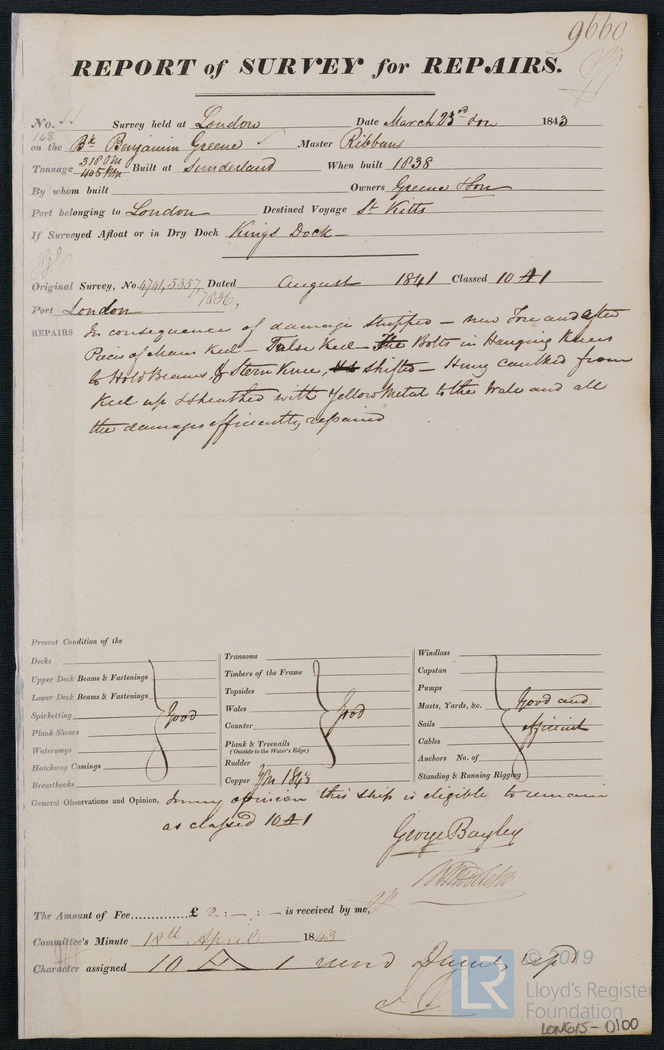 9660
REPORT of SURVEY for REPAIRS.
No. 51 Survey held at London Date March 23rd &on 1843
168
on the Bk Benjamin Greene Master Ribbans
Tonnage 318 OM 405 NM Built at Sunderland When built 1838
By whom built Owners Greene & Son
Port belonging to London Destined Voyage St. Kitts
If Surveyed Afloat or in Dry Dock Kings Dock
Original Survey, No. 4744 5357 Dated August 1841 Classed 10 A 1
7836,
Port London
REPAIRS In consequence of damage stripped – new Fore and after
Pieces of Main Keel – False Keel – The Bolts in Hanging Knees
to Hold Beams, & Stern Knee, shifted – Hung caulked from
Keel up & sheathed with Yellow Metal to the Wale and all
the damages efficiently repaired
Present Condition of the
Decks
Upper Deck Beams & Fastenings
Lower Deck Beams & Fastenings
Spirketting Good
Plank Sheers
Waterways
Hatchway Comings
Breasthooks
Transoms
Timbers of the Frame
Topsides
Wales Good
Counter
Plank & Treenails
(Outside to the Water's Edge)
Rudder
Copper YM 1843
Windlass
Capstan
Pumps
Masts, Yards, &c. Good and
Sails efficient
Cables
Anchors No. of
Standing & Running Rigging
General Observations and Opinion, In my opinion this ship is eligible to remain
as classed 10 A 1
George Bayley
The Amount of Fee.............. £ 2 : – : – is received by me,
Committee's Minute 18th April 1843
Character assigned 10 A 1
© 2019
LR Lloyd's Register
Foundation
LON615-0100